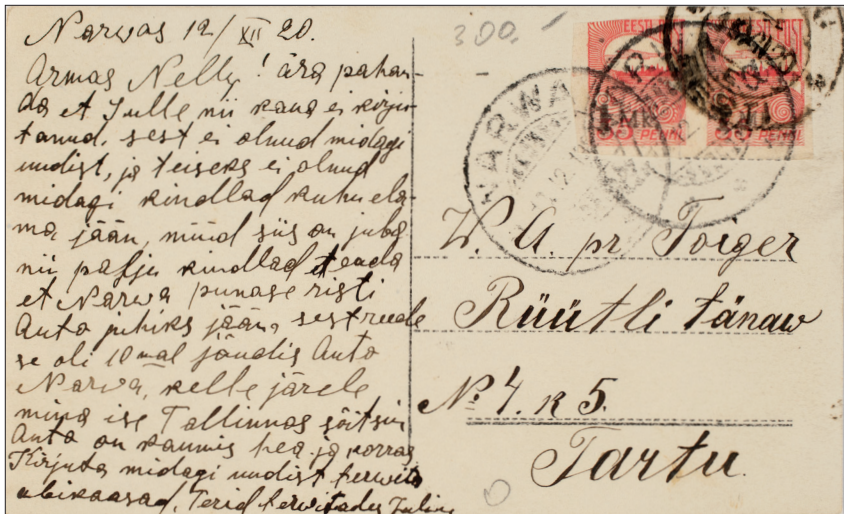 Narwas 12/XII 20.
Armas Nelly! ära pahan-
da et Sulle nii kaua ei kirju-
tanud. sest ei olnud midagi
uudist, ja teiseks ei olnud
midagi kindlad kuhu ela-
ma jään, nüüd siis on juba
nii palju kindlad teada
et Narwa punase risti
Auto juhiks jään, sest reede
se oli 10mal jõudis Auto
Narwa, kelle järele
mina ise Tallinnas sõitsin
Auto on kaunis hea ja korras
Kirjuta midagi uudist terwita
abikaasad. Terid terwitades
300.-
EESTI POST
EESTI POST
1 MK
35 PENNI
35 PENNI
NARWA
W. A. pr Toiger
Rüütli tänaw
No 4. k 5.
Tartu.